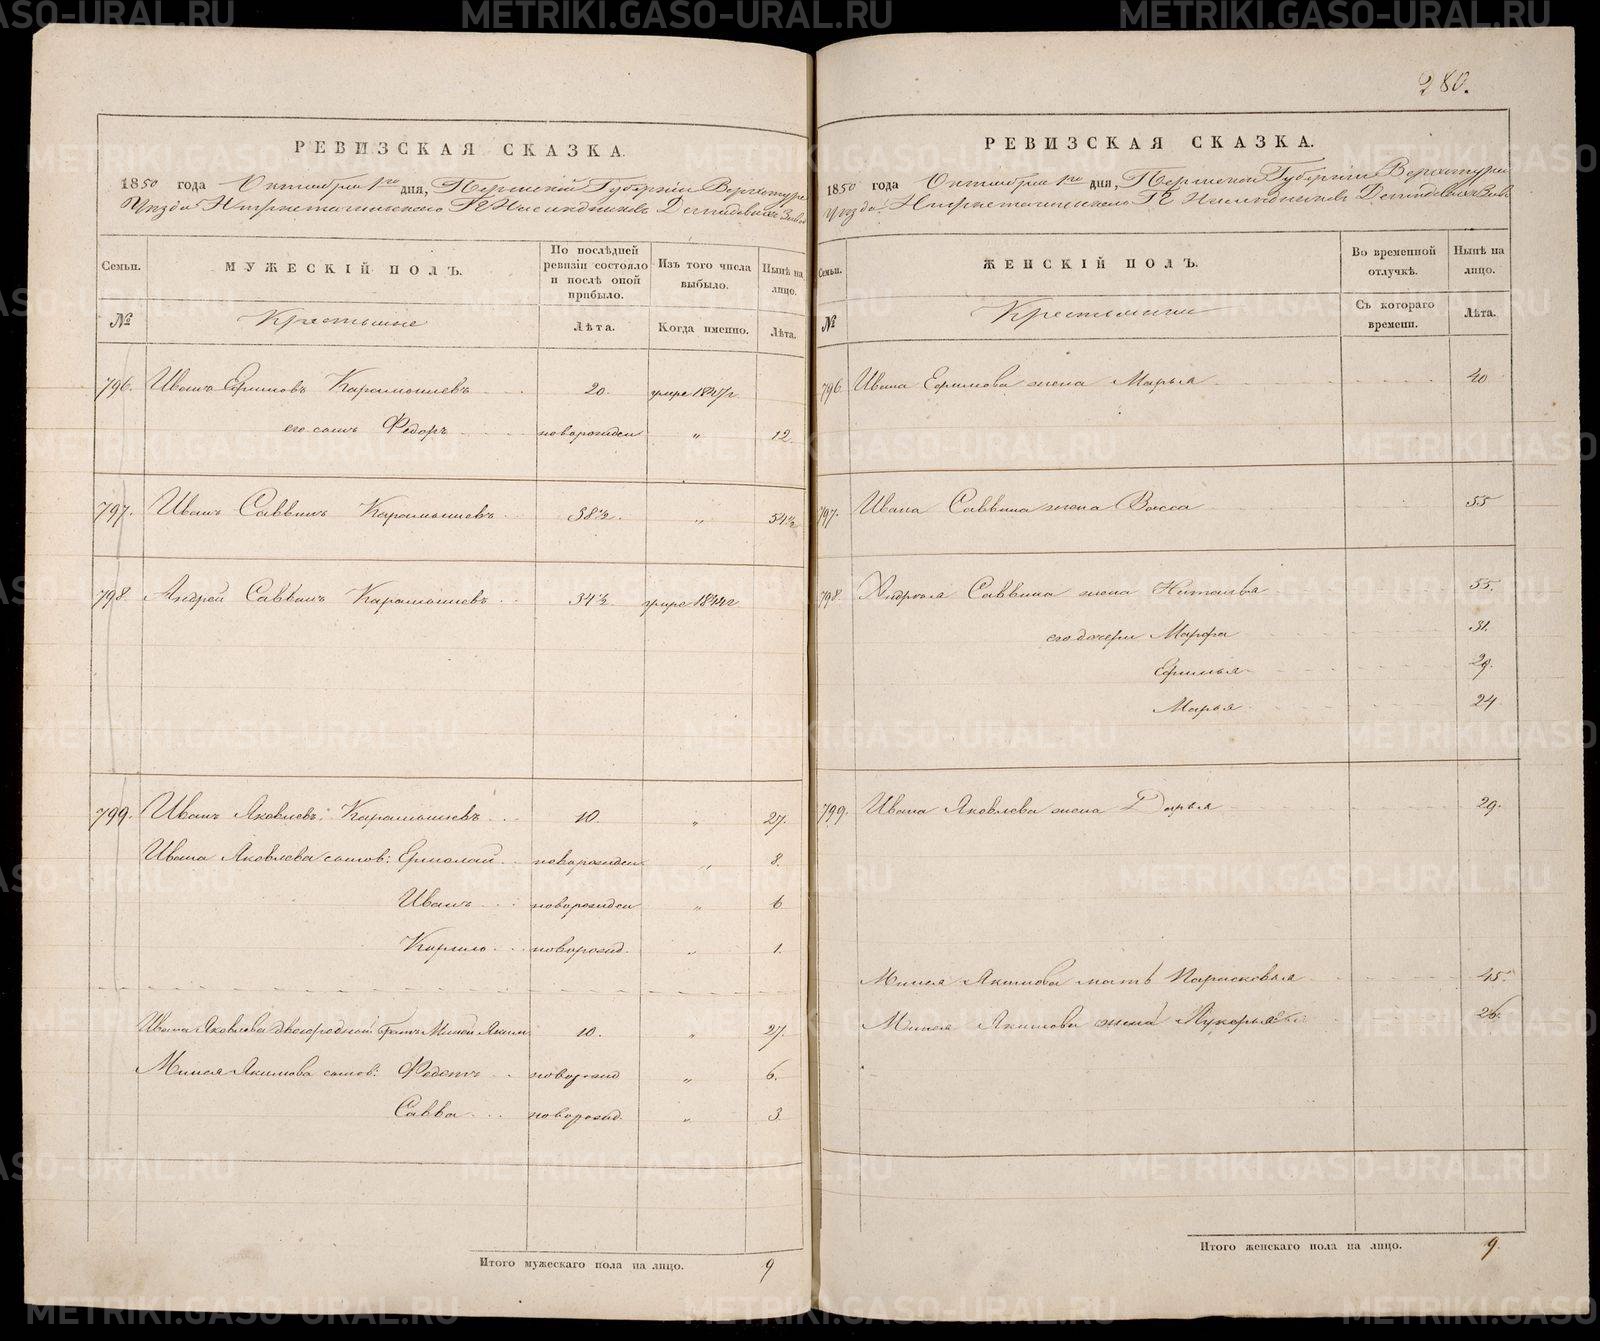 280.
РЕВИЗСКАЯ СКАЗКА.
1850 года Октября 1го дня, Пермской Губернiи Верхотур
Уезда Нижнетагильскаго Наследниковъ Демидовыхъ Заво
Семьи. МУЖЕСКIЙ ПОЛЪ. По послѣдней ревизiи состояло и послѣ оной прибыло. Изъ того числа выбыло. Нынѣ на лицо.
№ Крестьяне Лѣта. Когда именно. Лѣта.
796. Иванъ Ефимовъ Карамышевъ 20. умре 1847г
его сынъ Федоръ новорожден „ 12.
797. Иванъ Саввинъ Карамышевъ 38½. „ 54½
798. Андрей Саввинъ Карамышевъ 34½ умре 1844г
799. Иванъ Яковлевъ Карамышевъ 10. „ 27.
Ивана Яковлева сынов: Ермолай новорожден „ 8.
Иванъ новорожден „ 6
Кирило новорожд. „ 1.
Ивана Яковлева двоюродной братъ Миней Яким 10. „ 27.
Минея Якимова сынов: Федотъ новорожд „ 6.
Савва новорожд. „ 3
Итого мужескаго пола на лицо. 9
РЕВИЗСКАЯ СКАЗКА.
1850 года Октября 1го дня, Пермской Губернiи Верхотур
Уезда Нижнетагильскаго Наследниковъ Демидовыхъ Зав
Семьи. ЖЕНСКIЙ ПОЛЪ. Во временной отлучкѣ. Нынѣ на лицо.
№ Крестьянки Съ котораго времени. Лѣта.
796. Ивана Ефимова жена Марья 40
797. Ивана Саввина жена Васса 55
798. Андрея Саввина жена Наталья 55.
его дочери Марфа 31.
Ефимья 29.
Марья 24
799. Ивана Яковлева жена Дарья 29.
Минея Якимова мать Парасковья 45.
Минея Якимова жена Лукерья 26.
Итого женскаго пола на лицо. 9.
METRIKI.GASO-URAL.RU